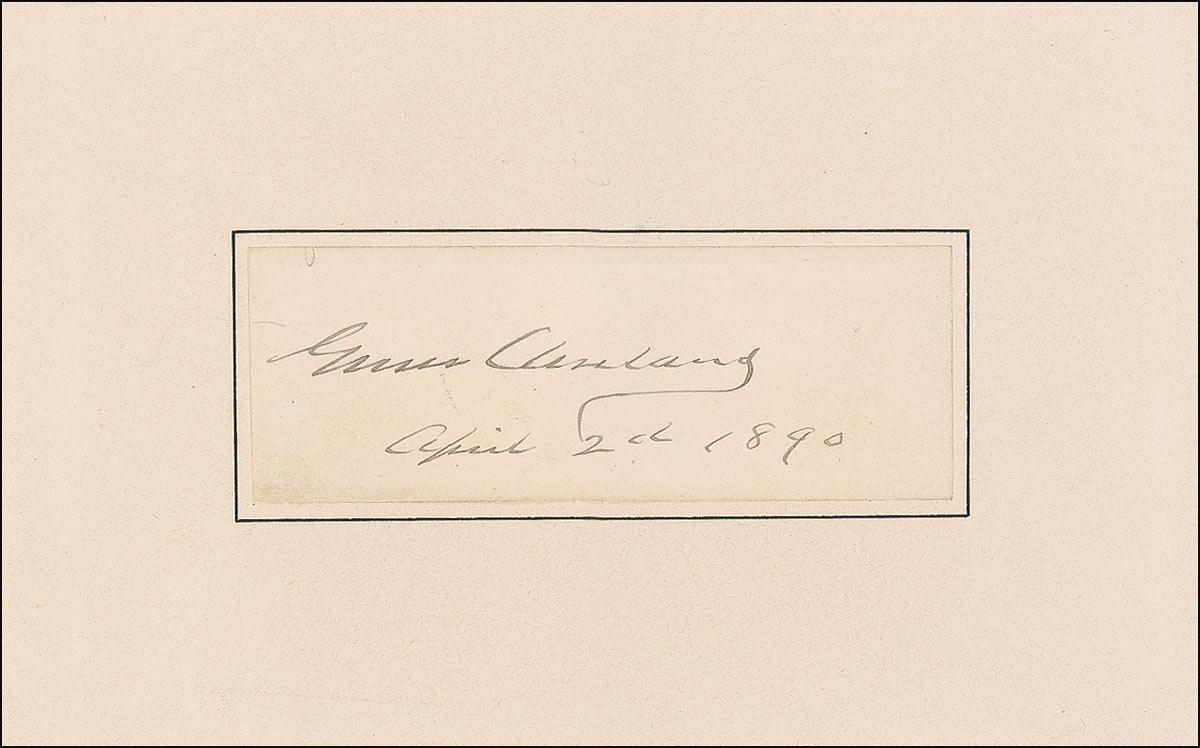 Grover Cleveland
April 2d 1890